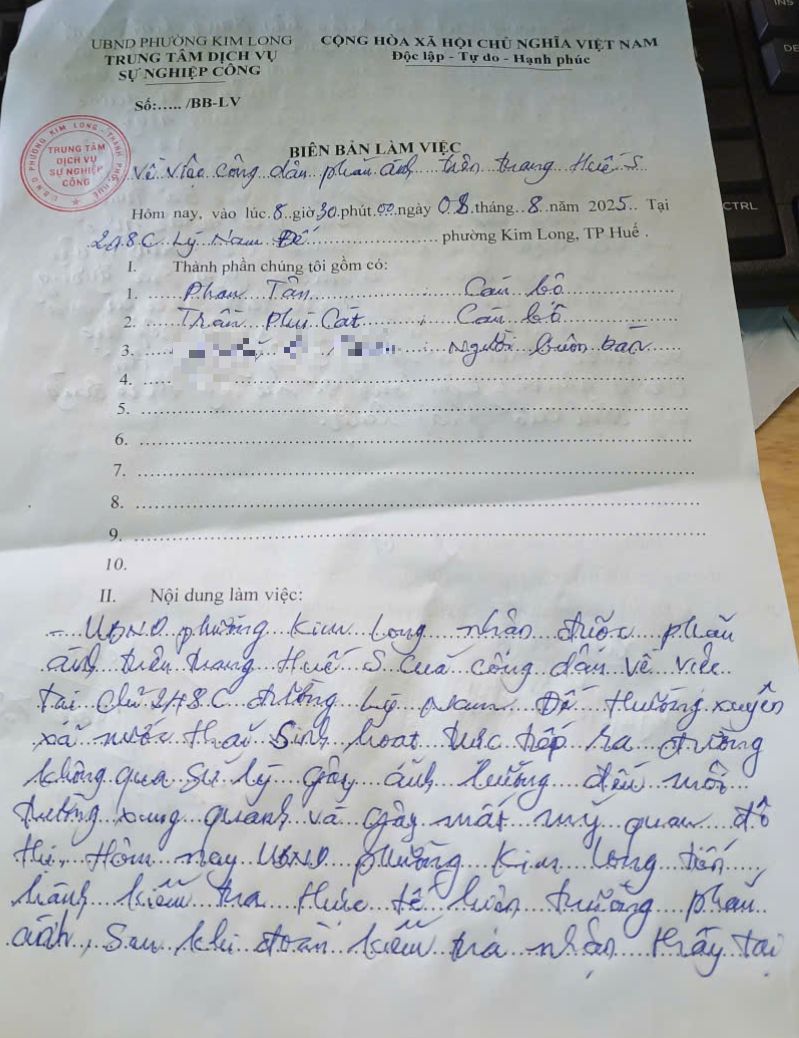 UBND PHƯỜNG KIM LONG
TRUNG TÂM DỊCH VỤ
SỰ NGHIỆP CÔNG
CỘNG HÒA XÃ HỘI CHỦ NGHĨA VIỆT NAM
Độc lập - Tự do - Hạnh phúc
Số:..... /BB-LV
U.B.N.D PHƯỜNG KIM LONG - THÀNH PHỐ HUẾ
TRUNG TÂM
DỊCH VỤ
SỰ NGHIỆP
CÔNG
BIÊN BẢN LÀM VIỆC
Về việc công dân phản ánh trên trang Huế S
Hôm nay, vào lúc 8 giờ 30 phút 00 ngày 08 tháng 8 năm 2025. Tại
248C Lý Nam Đế phường Kim Long, TP Huế .
I. Thành phần chúng tôi gồm có:
1. Phan Tân : Cán bộ
2. Trần Phi Cát : Cán bộ
3. : Người buôn bán
4.
5.
6.
7.
8.
9.
10.
II. Nội dung làm việc:
- UBND phường Kim Long nhận được phản
ánh trên trang Huế S của công dân về việc
tại 248C đường Lý Nam Đế thường xuyên
xả nước thải sinh hoạt trực tiếp ra đường
không qua sử lý gây ảnh hưởng đến môi
trường xung quanh và gây mất mỹ quan đô
thị, Hôm nay UBND phường Kim Long tiến
hành kiểm tra thực tế hiện trường phản
ánh, Sau khi đoàn kiểm tra nhận thấy tại